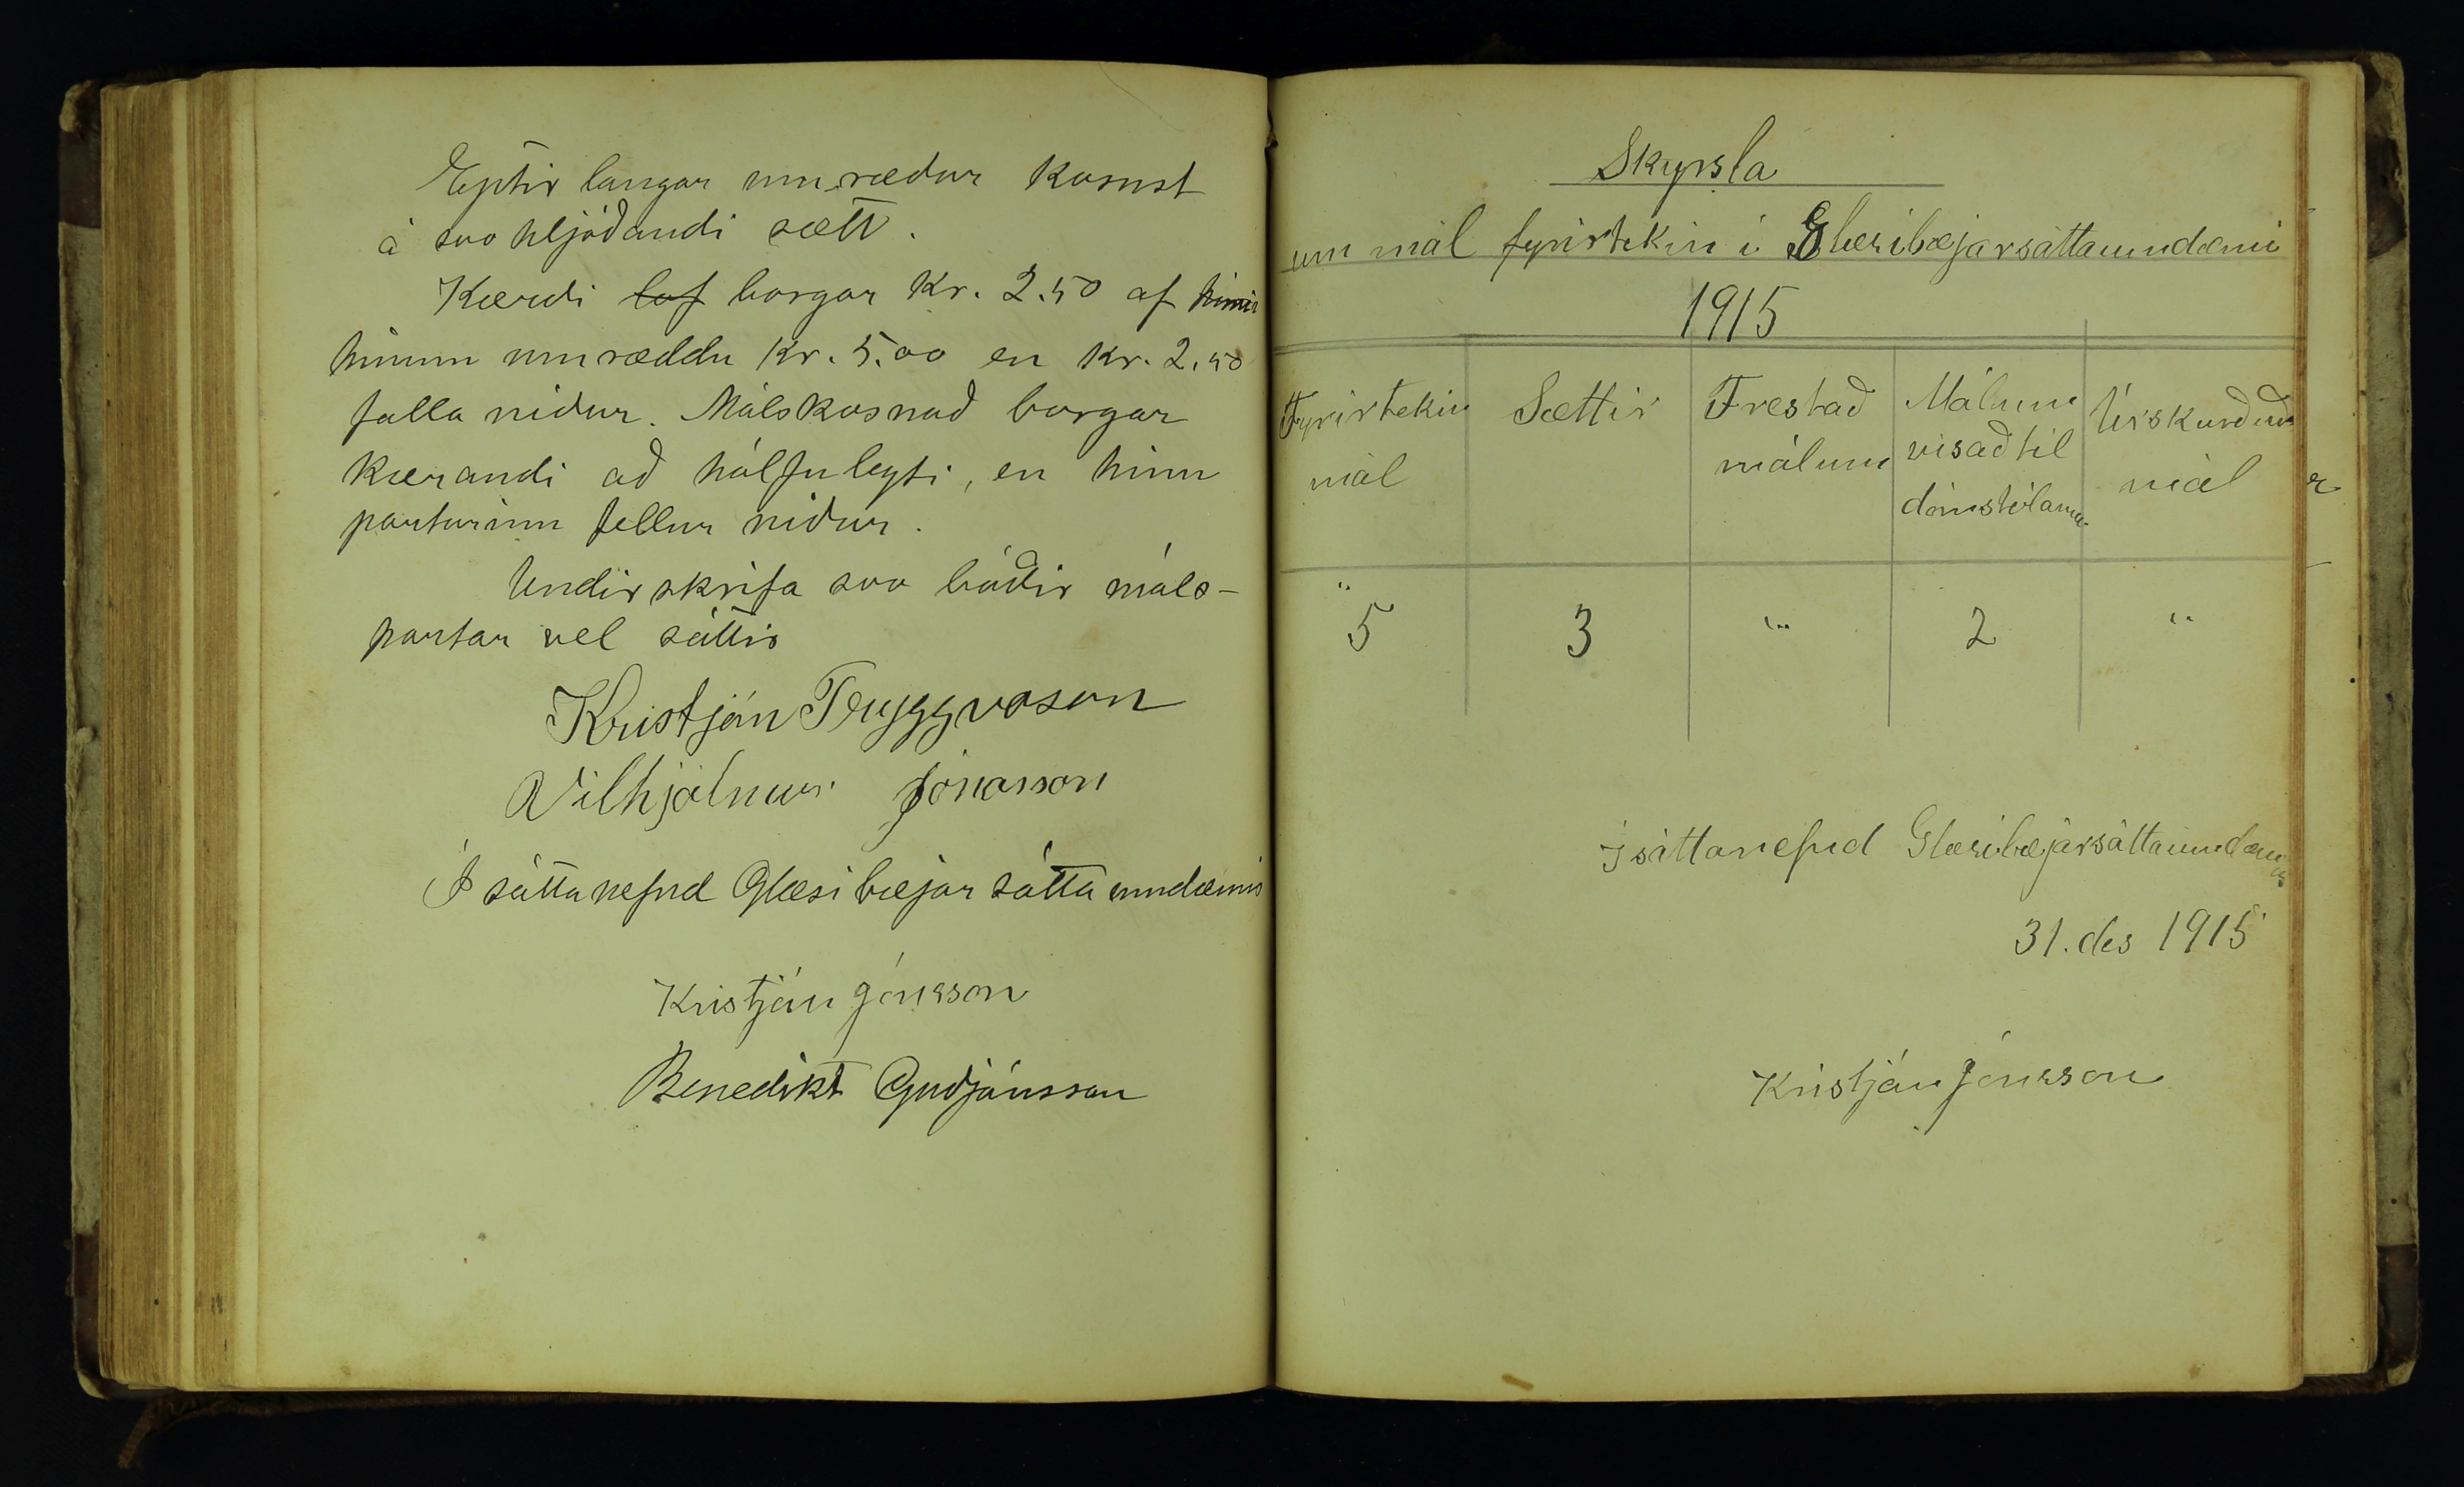 Eptir langar umrædur komst
á svo hljóðandi sætt.
Kærdi lof borgar Kr. 2.50 af hinni
hinum umræddu Kr. 5.00 en Kr. 2.50
falla nidur. Málskosnað borgar
kærandi að hálfuleyti, en hinn
parturinn fellur niður.
Undirskrifa svo báðir máls-
partar vel sáttir
Kristján Tryggvason
Vilhjálmur Jónasson
Í sáttanefnd Glæsibæjar sáttaumdæmis
Kristján Jónsson
Benedikt Guðjónsson
Skyrsla
um mál fyrirtekin í Glæsibæjarsáttaumdæmi
1915
Fyrirtekin mál
Sættir
Frestað málum
Málum visað til dómstólanna
Úrskurðuð mál
5 3 " 2 "
Í sáttanefnd Glæsibæjarsáttaumdæmis
31. des 1915
Kristján Jónsson